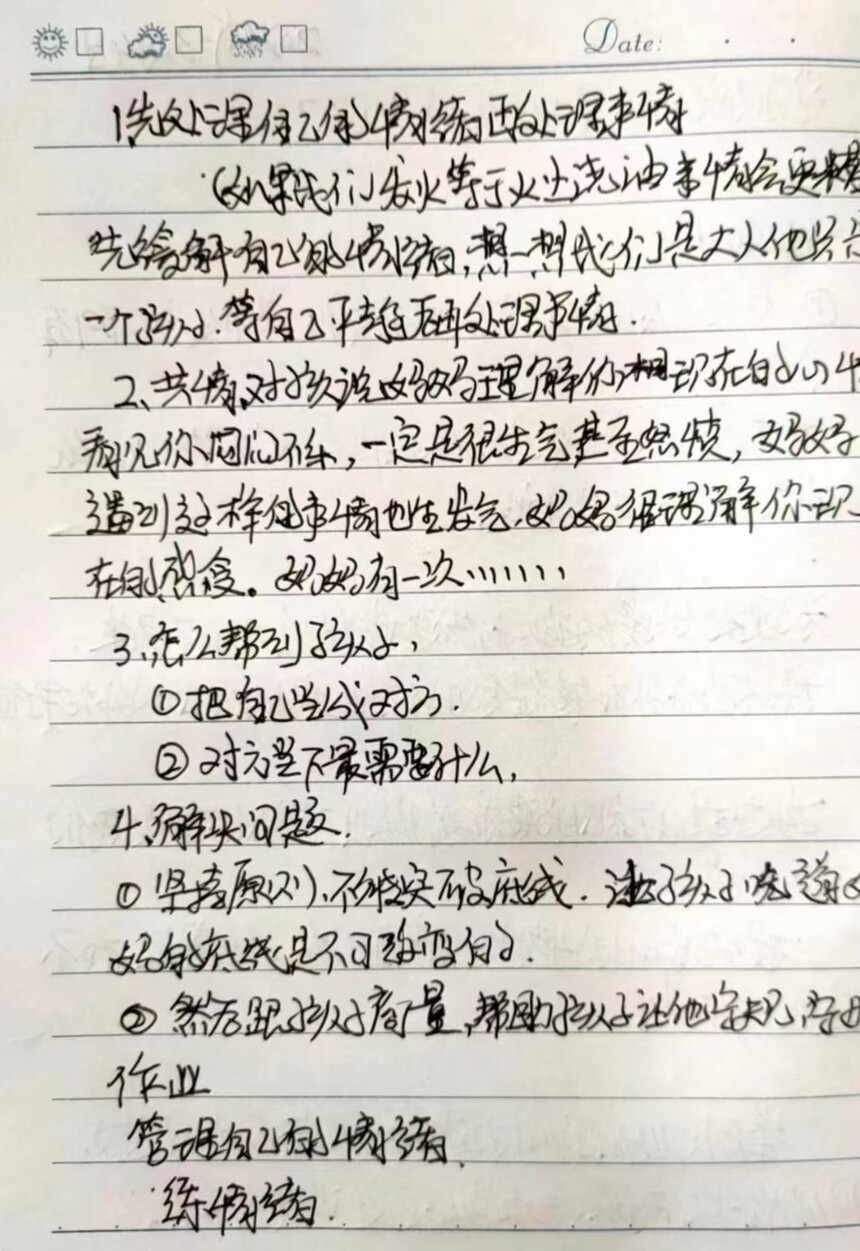 Date:
1先处理自己的情绪再处理事情
(如果我们发火等于火上浇油事情会更糟
先缓解自己的情绪,想一想我们是大人他只是
一个孩子.等自己平静后再处理事情.
2、共情,对孩说妈妈理解你 现在的心情
看见你闷闷不乐,一定是很生气甚至愤怒,妈妈
遇到这样的事情也生发气.妈妈很理解你现
在的感受。妈妈有一次·······
3、怎么帮到孩子,
①把自己当成对方.
②对方当下最需要什么,
4、解决问题.
①坚持原则、不 不破底线.让孩子 道
妈的底线是不可改变的.
②然后跟孩子商量,帮助孩子让他
作业
管理自己的情绪.
练情绪.